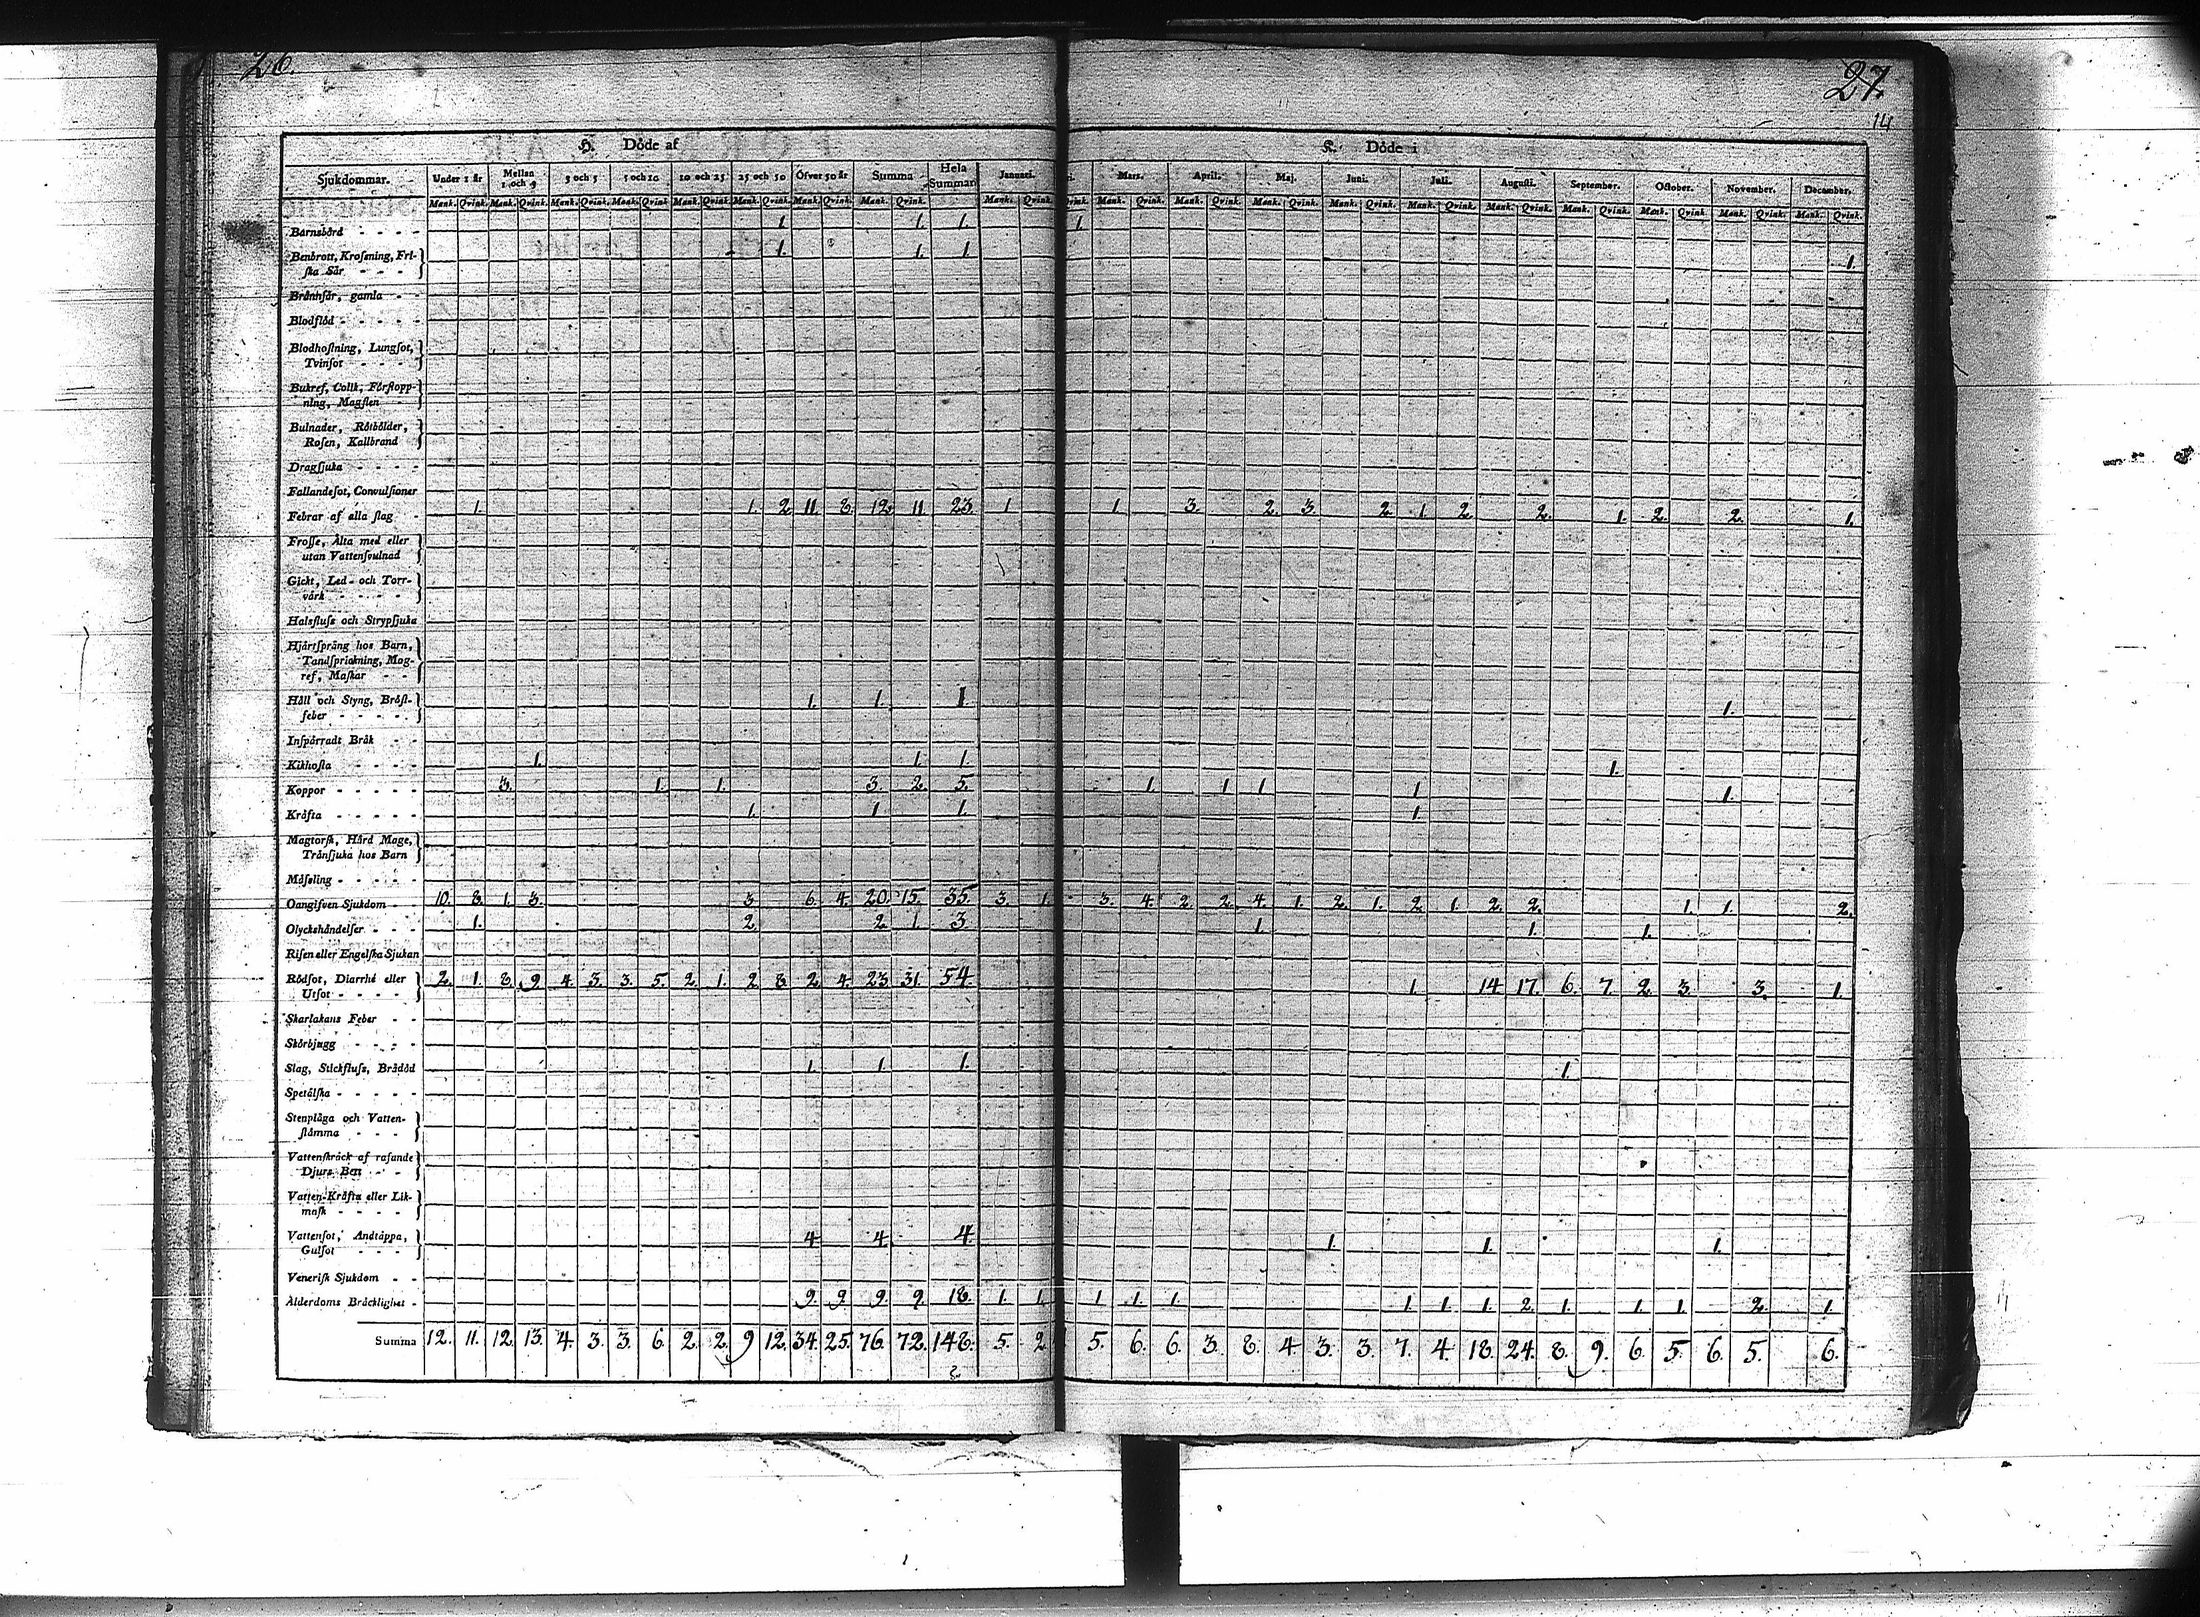 26.
27
14
H. Döde af
K. Döde i
Sjukdommar. Under 1 år Mellan 1 och 3 3 och 5 5 och 10 10 och 25 25 och 50 Öfver 50 år Summa Hela Summan Januari. Mars. April. Maj. Juni. Juli. Augusti. September. October. November. December.
Mank. Qvink. Mank. Qvink. Mank. Qvink. Mank. Qvink. Mank. Qvink. Mank. Qvink. Mank. Qvink. Mank. Qvink. Mank. Qvink. Mank. Qvink. Mank. Qvink. Mank. Qvink. Mank. Qvink. Mank. Qvink. Mank. Qvink. Mank. Qvink. Mank. Qvink. Mank. Qvink. Mank. Qvink.
Barnsbörd - - - - 1. 1. 1. 1.
Benbrott, Krosening, Fri-
ska Sår - - - 1. 1. 1 1.
Brännsår, gamla - -
Blodflöd - - - - -
Blodhostning, Lungsot,
Tvinsot - - - -
Bukref, Colik, Förstopp-
ning, Magsten -
Bulnader, Rötbölder,
Rosen, Kallbrand
Dragsjuka - - - -
Fallandesot, Convulsioner
Febrar af alla slag - 1. 1. 2 11. 8. 12. 11 23. 1 1. 3. 2. 3. 2. 1. 2. 2. 1. 2. 2. 1.
Frosse, Älta med eller
utan Vattensvulnad
Gickt, Led- och Torr-
värk - - - -
Halsfluss och Strypsjuka
Hjärtsprång hos Barn,
Tandsprickning, Mag-
ref, Maskar - -
Håll och Styng, Bröst-
feber - - - - - 1. 1. 1. 1.
Inspärradt Bråk - -
Kikhosta - - - - 1. 1. 1. 1.
Koppor - - - - - 3. 1. 1. 3. 2. 5. 1. 1 1 1 1.
Kräfta - - - - - 1. 1 1. 1.
Magtorsk, Hård Mage,
Tränsjuka hos Barn
Måssling - - - - -
Oangifven Sjukdom - 10. 8. 1. 3. 3 6. 4. 20. 15. 35. 3. 1. 3. 4. 2. 2. 4. 1. 2. 1. 2. 1. 2. 2. 1. 1. 2.
Olyckshändelser - - - 1. 2. 2 1. 3. 1. 1. 1.
Risen eller Engelska Sjukan
Rödsot, Diarrhé eller
Utsot - - - - 2. 1. 8. 9 4. 3. 3. 5. 2. 1. 2 8. 2. 4. 23. 31. 54. 1. 14 17. 6. 7. 2. 3. 3. 1.
Skarlakans Feber - -
Skörbjugg - - - -
Slag, Stickfluss, Brådöd 1. 1. 1. 1.
Spetälska - - - - -
Stenplåga och Vatten-
stämma - - -
Vattenskräck af rasande
Djurs Bett - -
Vatten-Kräfta eller Lik-
mask - - - -
Vattensot, Andtäppa,
Gulsot - - - 4 4. 4. 1. 1. 1.
Venerisk Sjukdom - -
Ålderdoms Bräcklighet - 9. 9. 9. 9. 18. 1. 1. 1 1. 1. 1. 1. 1. 2. 1. 1. 1. 2. 1.
Summa 12. 11. 12. 13. 4. 3. 3. 6. 2. 2. 9 12. 34. 25. 76. 72. 148. 5. 2 5. 6. 6. 3. 8. 4 3. 3. 7. 4. 18. 24. 8. 9. 6. 5. 6. 5. 6.